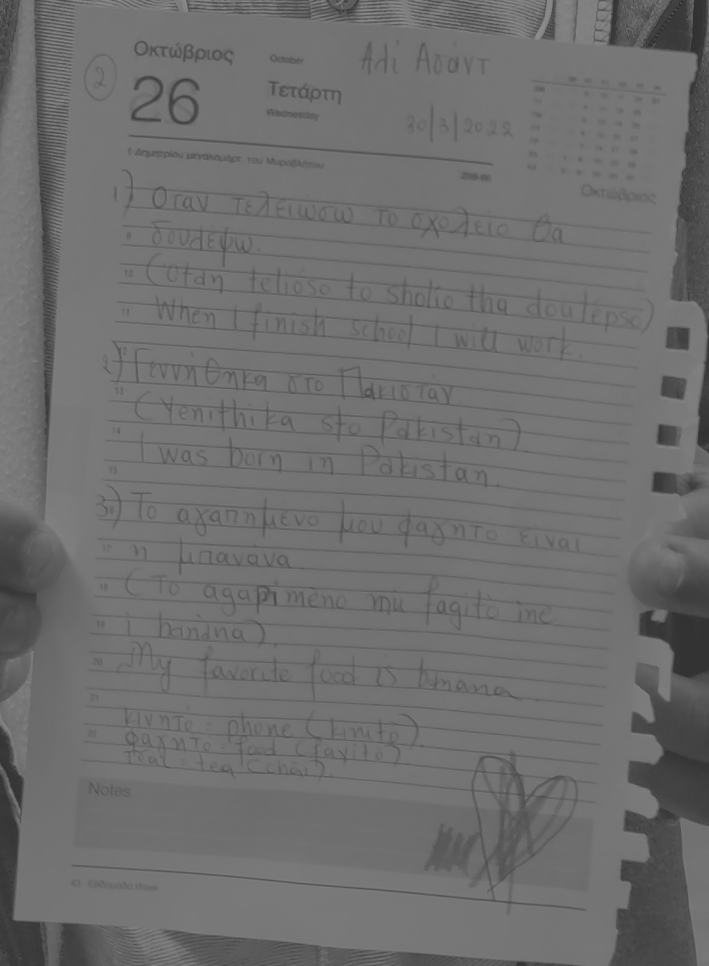 2
Οκτώβριος October Αλί Ασάντ
26 Τετάρτη
Wednesday
30/3/2022
† Δημητρίου μεγαλομάρτ. του Μυροβλήτου
299-66
Οκτώβριος
1) Οταν τελειωσω το σχολείο θα
9 δουλεψω.
10 (otan telioso to sholio tha doulepso)
11 When I finish school I will work.
2) Γεννήθηκα στο Πακιστάν
13 (Yenithika sto Pakistan)
14 I was born in Pakistan.
15
3) Το αγαπημενο μου φαγητο ειναι
17 η μπανανα
18 (To agapimeno mu fagito ine
19 i banana).
20 My favorite food is banana.
21
κινητό = phone (kinito).
22 φαγητο = food (faxito)
τσαι = tea (chai).
Notes
43 Εβδομάδα Week